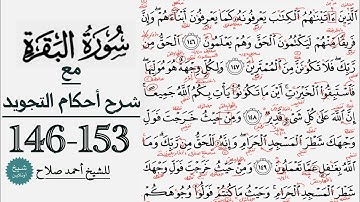 سورة البقرة
مع
شرح أحكام التجويد
146-153
للشيخ أحمد صلاح
شيخ أونلاين
الَّذِينَ ءَاتَيْنَٰهُمُ الْكِتَٰبَ يَعْرِفُونَهُ كَمَا يَعْرِفُونَ أَبْنَاءَهُمْ وَإِنَّ
فَرِيقًا مِّنْهُمْ لَيَكْتُمُونَ الْحَقَّ وَهُمْ يَعْلَمُونَ ١٤٦ الْحَقُّ مِن
رَّبِّكَ فَلَا تَكُونَنَّ مِنَ الْمُمْتَرِينَ ١٤٧ وَلِكُلٍّ وِجْهَةٌ هُوَ مُوَلِّيهَا
فَاسْتَبِقُوا الْخَيْرَٰتِ أَيْنَ مَا تَكُونُوا يَأْتِ بِكُمُ اللَّهُ جَمِيعًا
إِنَّ اللَّهَ عَلَىٰ كُلِّ شَيْءٍ قَدِيرٌ ١٤٨ وَمِنْ حَيْثُ خَرَجْتَ فَوَلِّ
وَجْهَكَ شَطْرَ الْمَسْجِدِ الْحَرَامِ وَإِنَّهُ لَلْحَقُّ مِن رَّبِّكَ وَمَا
اللَّهُ بِغَٰفِلٍ عَمَّا تَعْمَلُونَ ١٤٩ وَمِنْ حَيْثُ خَرَجْتَ فَوَلِّ وَجْهَكَ
شَطْرَ الْمَسْجِدِ الْحَرَامِ وَحَيْثُ مَا كُنتُمْ فَوَلُّوا وُجُوهَكُمْ